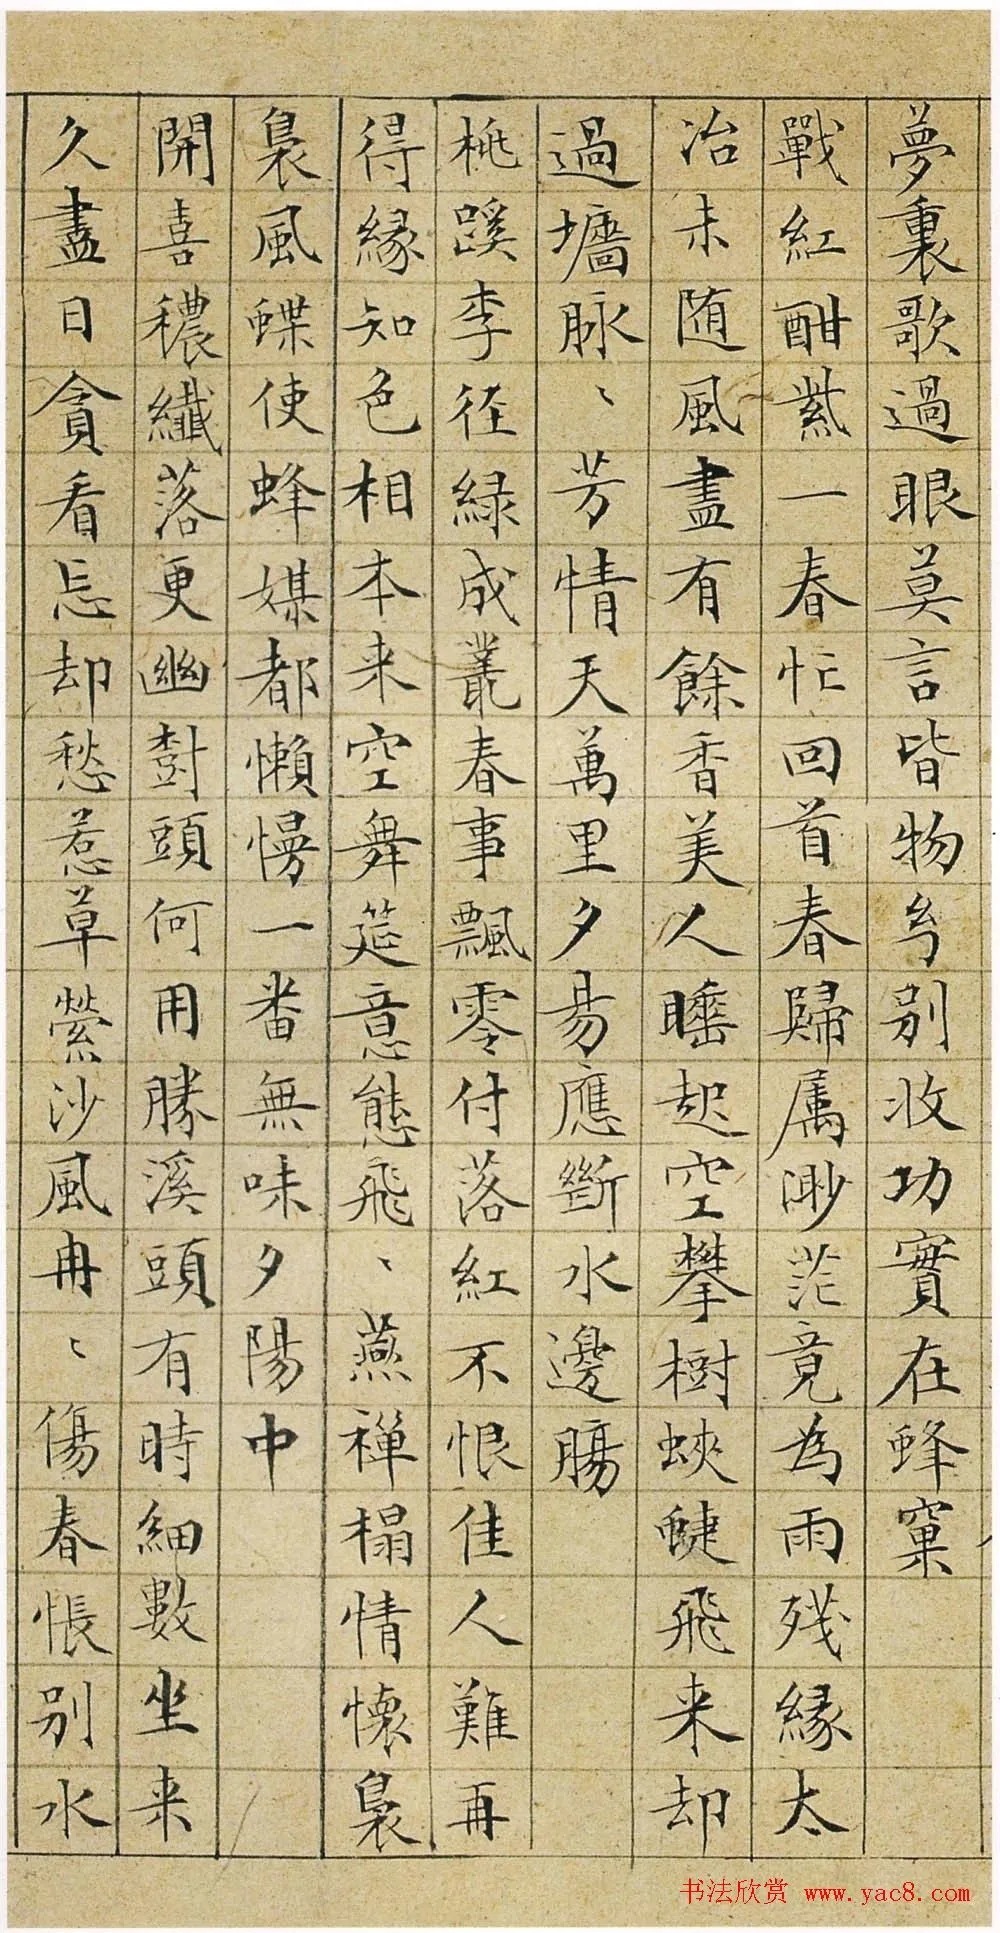 夢裏歌過眼莫言皆物兮別收功實在蜂窠
戰紅酣紫一春忙回首春歸屬渺茫竟為雨殘緣太
冶未随風盡有餘香美人睡起空攀樹蛺蝶飛来却
過墻脉、芳情天萬里夕易應斷水邊腸
桃蹊李徑綠成叢春事飄零付落紅不恨佳人難再
得緣知色相本来空舞筵意態飛、燕禅榻情懷裊
裊風蝶使蜂媒都懶慢一番無味夕陽中
開喜穠纖落更幽樹頭何用勝溪頭有時細數坐来
久盡日貪看忘却愁惹草縈沙風冉、傷春悵別水
书法欣赏 www.yac8.com